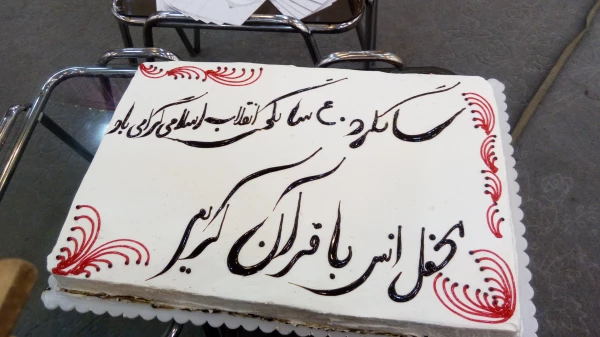 سالگرد ۴۰ سالگی انقلاب اسلامی گرامی باد
محفل انس با قرآن کریم